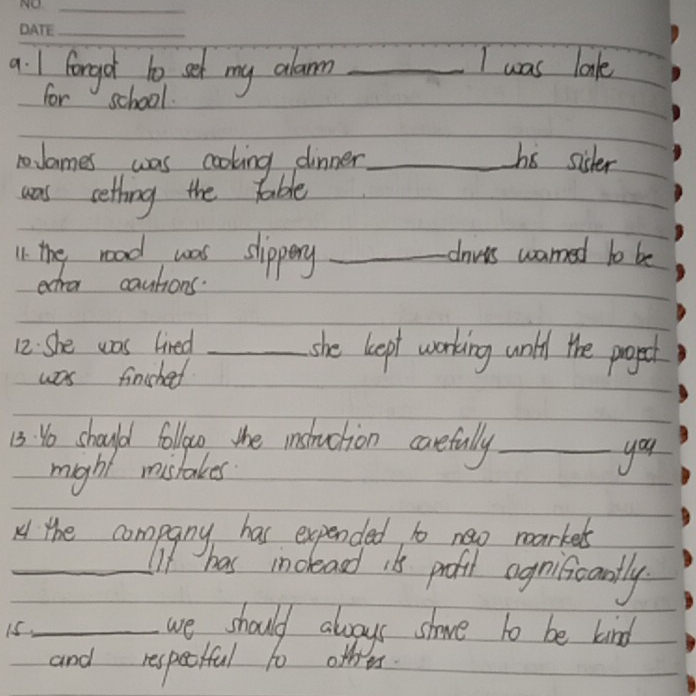 NO.
DATE
9. I forgot to set my alarm ________ I was late
for school.
10. James was cooking dinner ________ his sister
was setting the table
11. the road was slippery ________ drivers warned to be
extra cautions.
12. She was tired ________ she kept working until the project
was finished
13. Yo should follow the instruction carefully ________ you
might mistakes.
14. the company has expended to new markets
________ It has increased its profit significantly.
15. ________ we should always strive to be kind
and respectful to others.